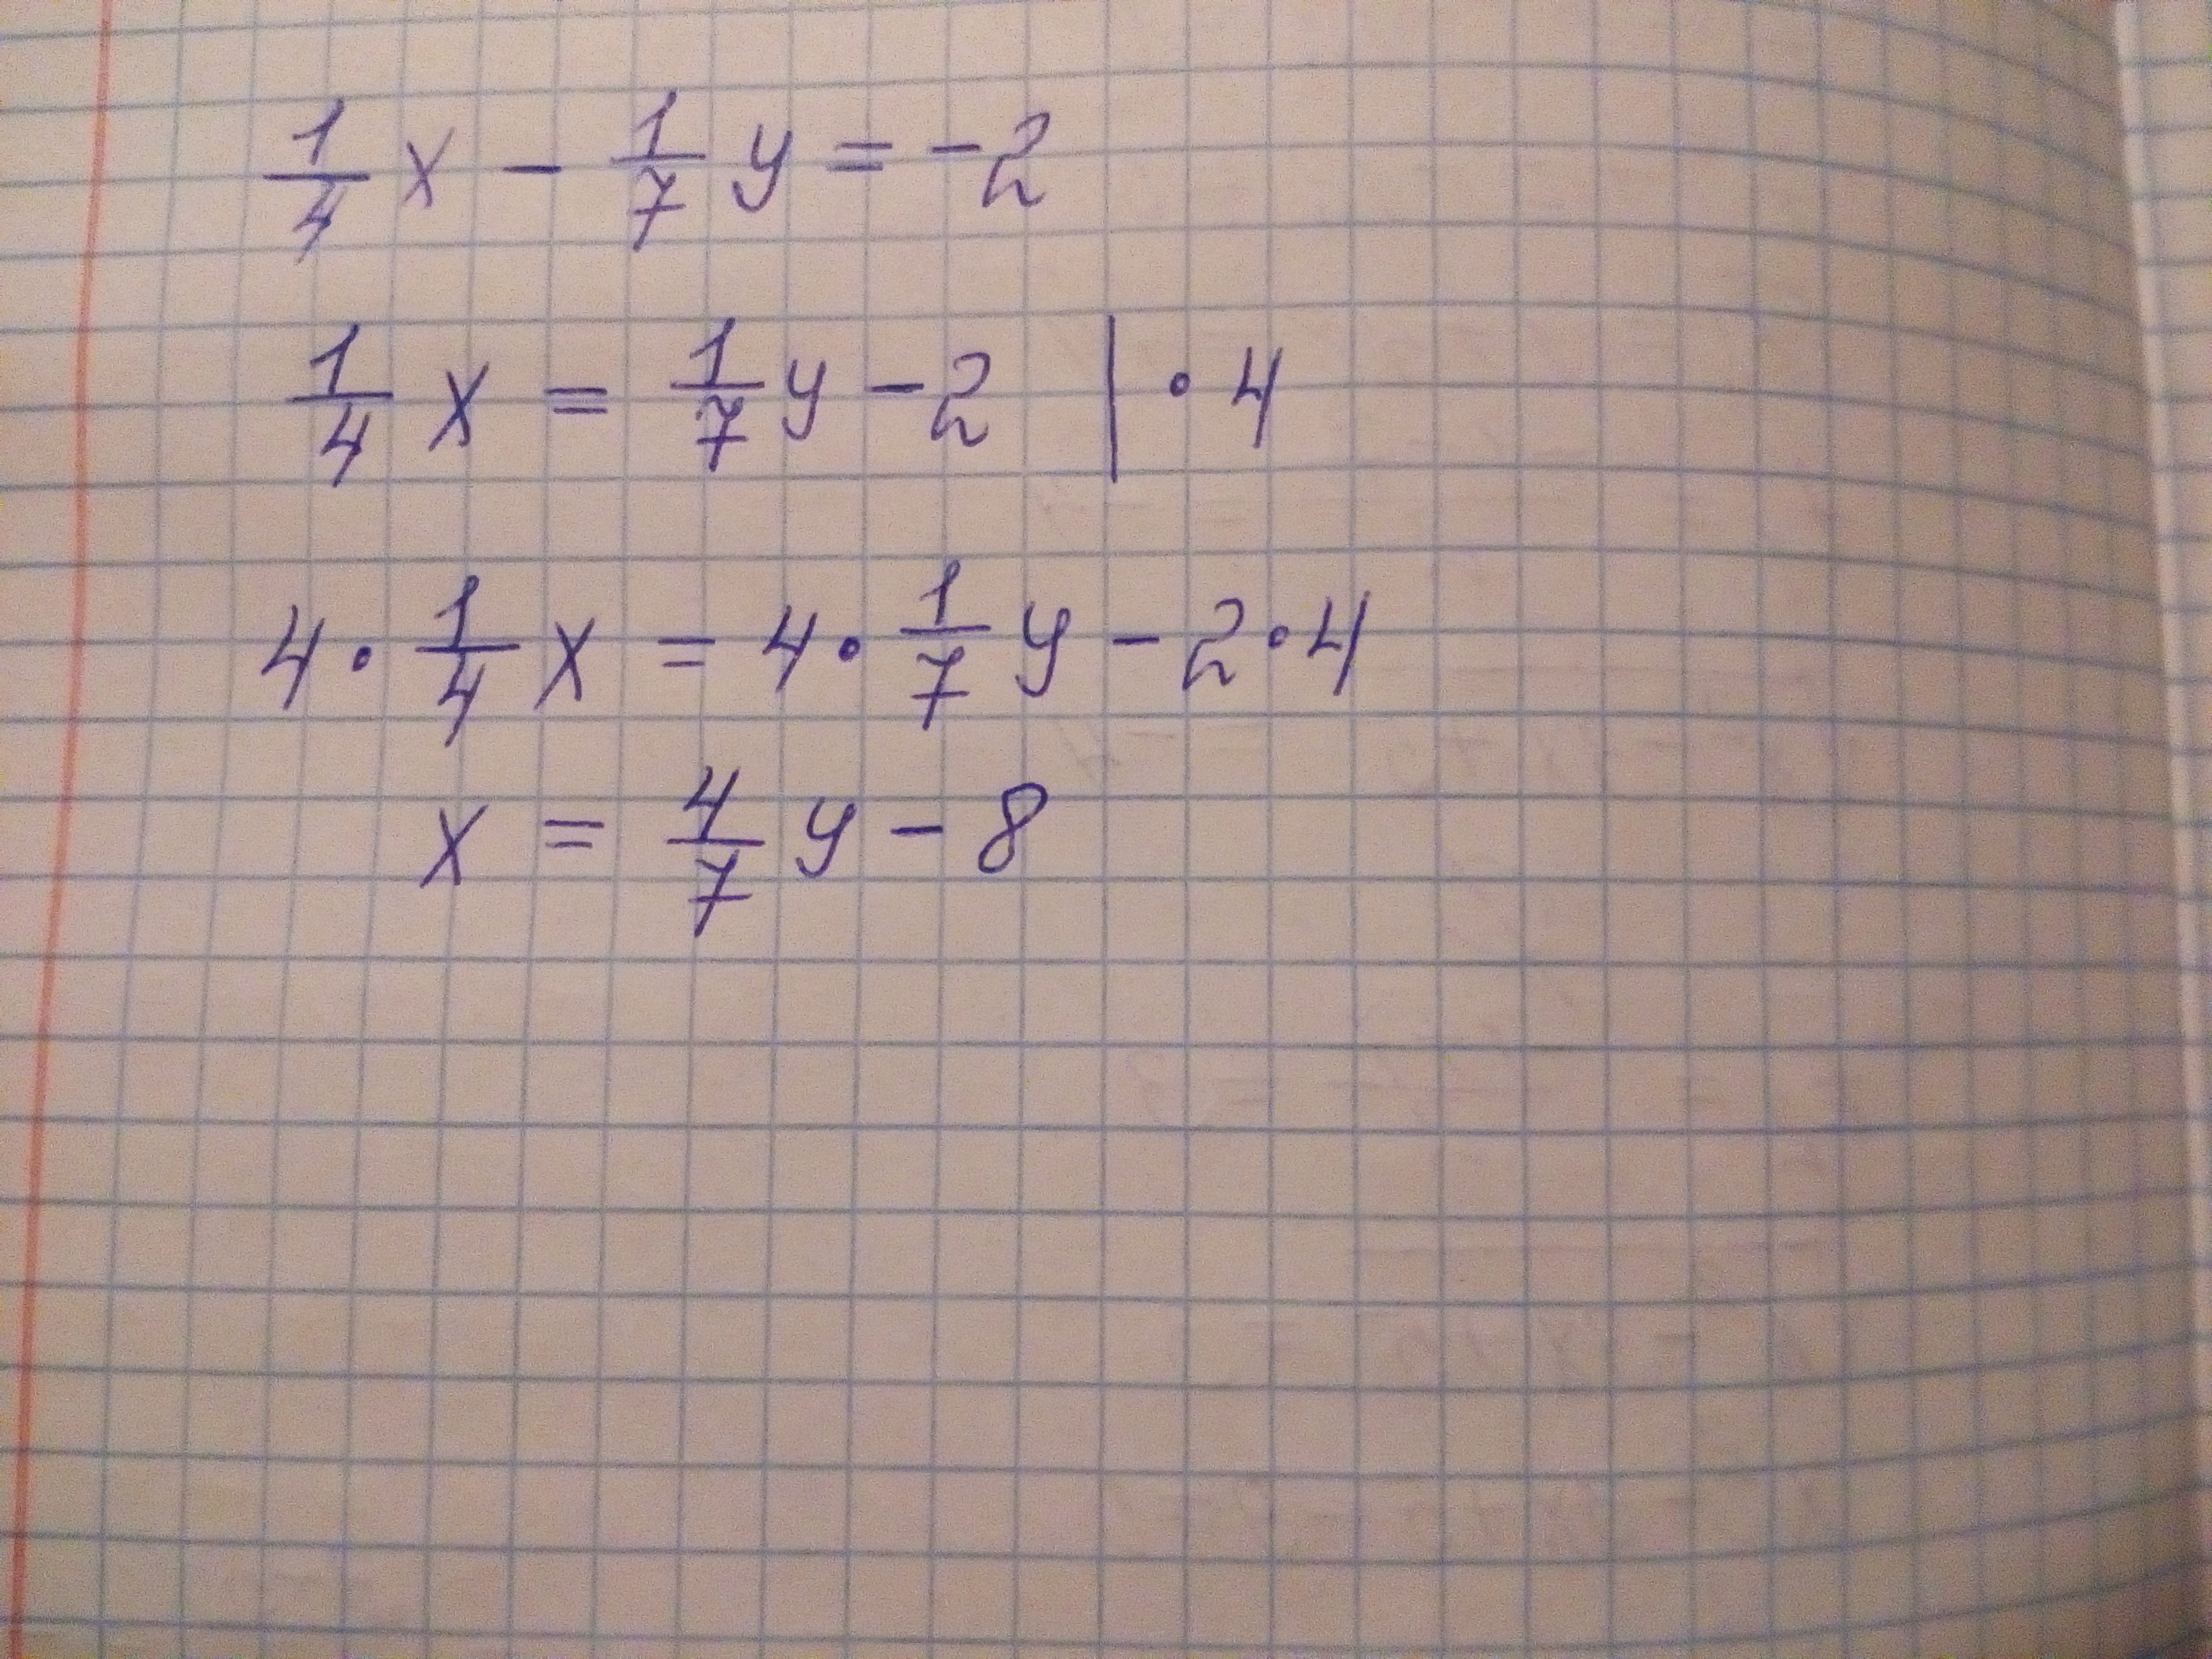 1/4 x - 1/7 y = -2
1/4 x = 1/7 y - 2 | · 4
4 · 1/4 x = 4 · 1/7 y - 2 · 4
x = 4/7 y - 8